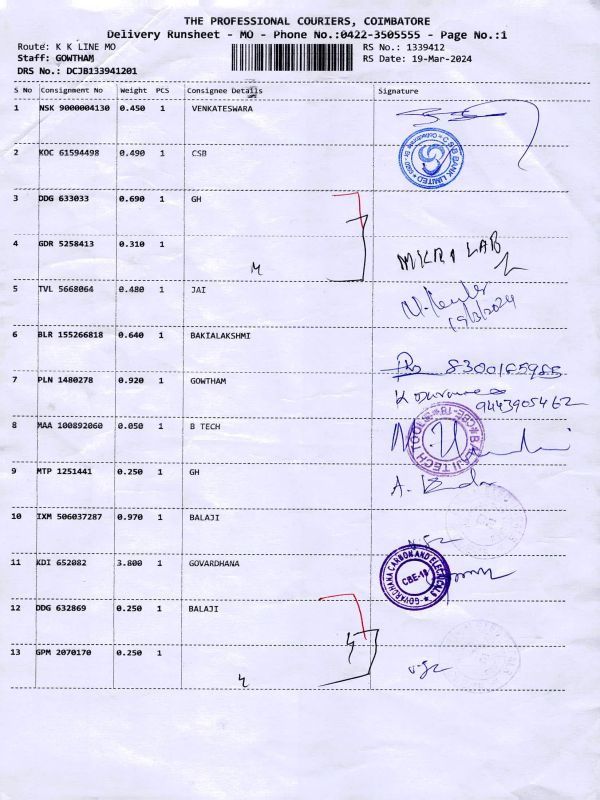 THE PROFESSIONAL COURIERS, COIMBATORE
Delivery Runsheet - MO - Phone No.:0422-3505555 - Page No.:1
Route: K K LINE MO RS No.: 1339412
Staff: GOWTHAM RS Date: 19-Mar-2024
DRS No.: DCJB133941201
S No Consignment No Weight PCS Consignee Details Signature
1 NSK 9000004130 0.450 1 VENKATESWARA
2 KOC 61594498 0.490 1 CSB
CSB BANK LIMITED
3 DDG 633033 0.690 1 GH
4 GDR 5258413 0.310 1
MKRI LAB
5 TVL 5668064 0.480 1 JAI
19/3/2024
6 BLR 155266818 0.640 1 BAKIALAKSHMI
8300165985
7 PLN 1480278 0.920 1 GOWTHAM
9443905462
8 MAA 100892060 0.050 1 B TECH
BALAJI TECH TOOLS CBE-18
9 MTP 1251441 0.250 1 GH
10 IXM 506037287 0.970 1 BALAJI
11 KDI 652082 3.800 1 GOVARDHANA
GOVARDHANA CARBON AND ELECTRICALS
CBE-18
12 DDG 632869 0.250 1 BALAJI
13 GPM 2070170 0.250 1